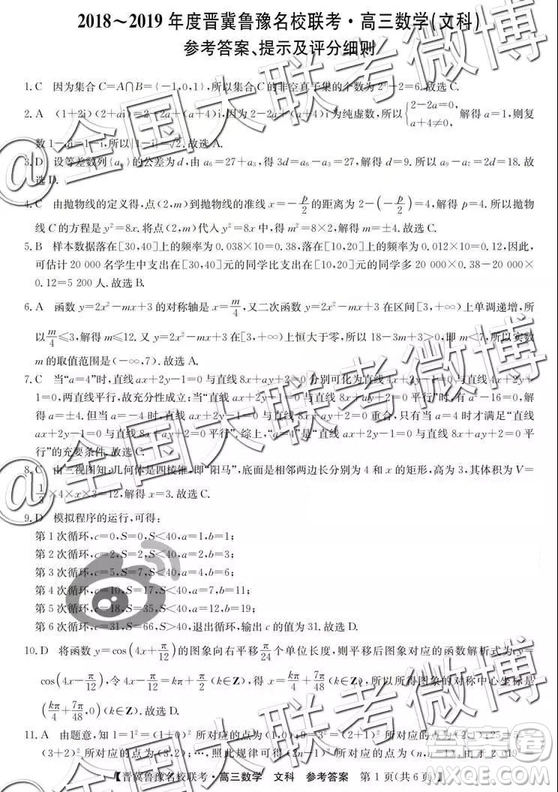 2018～2019年度晋冀鲁豫名校联考·高三数学(文科)
参考答案、提示及评分细则
1.C 因为集合C=A∩B={-1,0,1},所以集合C的非空真子集的个数为2³-2=6.故选C.
2.A (1+2i)(2+ai)=2-2a+(a+4)i,因为2-2a+(a+4)i为纯虚数,所以{2-2a=0, a+4≠0, 解得a=1,则复
数1-ai=1-i,所以|1-i|=√2.故选A.
3.D 设等差数列{aₙ}的公差为d,由a₆=27+a₃,得3d=a₆-a₃=27,解得d=9.所以a₇-a₅=2d=18.故
选D.
4.C 由抛物线的定义得,点(2,m)到抛物线的准线x=-p/2的距离为2-(-p/2)=4,解得p=4.所以抛物
线C的方程是y²=8x.将点(2,m)代入y²=8x中,得m²=8×2,解得m=±4.故选C.
5.B 样本数据落在[30,40]上的频率为0.038×10=0.38,落在[10,20]上的频率为0.012×10=0.12,因此,
可估计20 000名学生中支出在[30,40]元的同学比支出在[10,20]元的同学多20 000×0.38-20 000×
0.12=5 200人.故选B.
6.A 函数y=2x²-mx+3的对称轴是x=m/4,又二次函数y=2x²-mx+3在区间[3,+∞)上单调递增,所
以m/4≤3,解得m≤12.又y=2x²-mx+3在[3,+∞)上恒大于零,所以18-3m+3>0,即m<7,所以实数
m的取值范围是(-∞,7).故选A.
7.C 当“a=4”时,直线ax+2y-1=0与直线8x+ay+2=0分别可化为直线4x+2y-1=0与直线4x+2y+
1=0,两直线平行,故充分性成立;当“直线ax+2y-1=0与直线8x+ay+2=0平行”时,有a²-16=0,解
得a=±4.但当a=-4时,直线ax+2y-1=0与直线8x+ay+2=0重合,只有当a=4时才满足“直线
ax+2y-1=0与直线8x+ay+2=0平行”.综上,“a=4”是“直线ax+2y-1=0与直线8x+ay+2=0平
行”的充要条件.故选C.
8.C 由三视图知,几何体是四棱锥,即“阳马”,底面是相邻两边长分别为4和x的矩形,高为3,其体积V=
1/3×4×x×3=12,解得x=3.故选C.
9.D 模拟程序的运行,可得:
第1次循环,c=0,S=0,S<40,a=1,b=1;
第2次循环
第3次循环
第4次循环
第5次循环,c=18,S=35,S<40,a=12,b=19;
第6次循环,c=31,S=66,S>40,退出循环,输出c的值为31.故选D.
10.D 将函数y=cos(4x+π/12)的图象向右平移π/24个单位长度,则平移后图象对应的函数解析式为y=
cos(4x-π/12),令4x-π/12=kπ+π/2(k∈Z),得x=kπ/4+7π/48(k∈Z),故所得图象的对称中心坐标是
(kπ/4+7π/48,0)(k∈Z).故选D.
11.A 由题意,知1=1²=(1+0)²所对应的点为(1,0)
(3+2)²所对应的点为(3,2);…,照此规律可得
【晋冀鲁豫名校联考·高三数学 文科 参考答案 第1页(共6页)】
@全国大联考微博
@全国大联考微博
@全国大联考微博